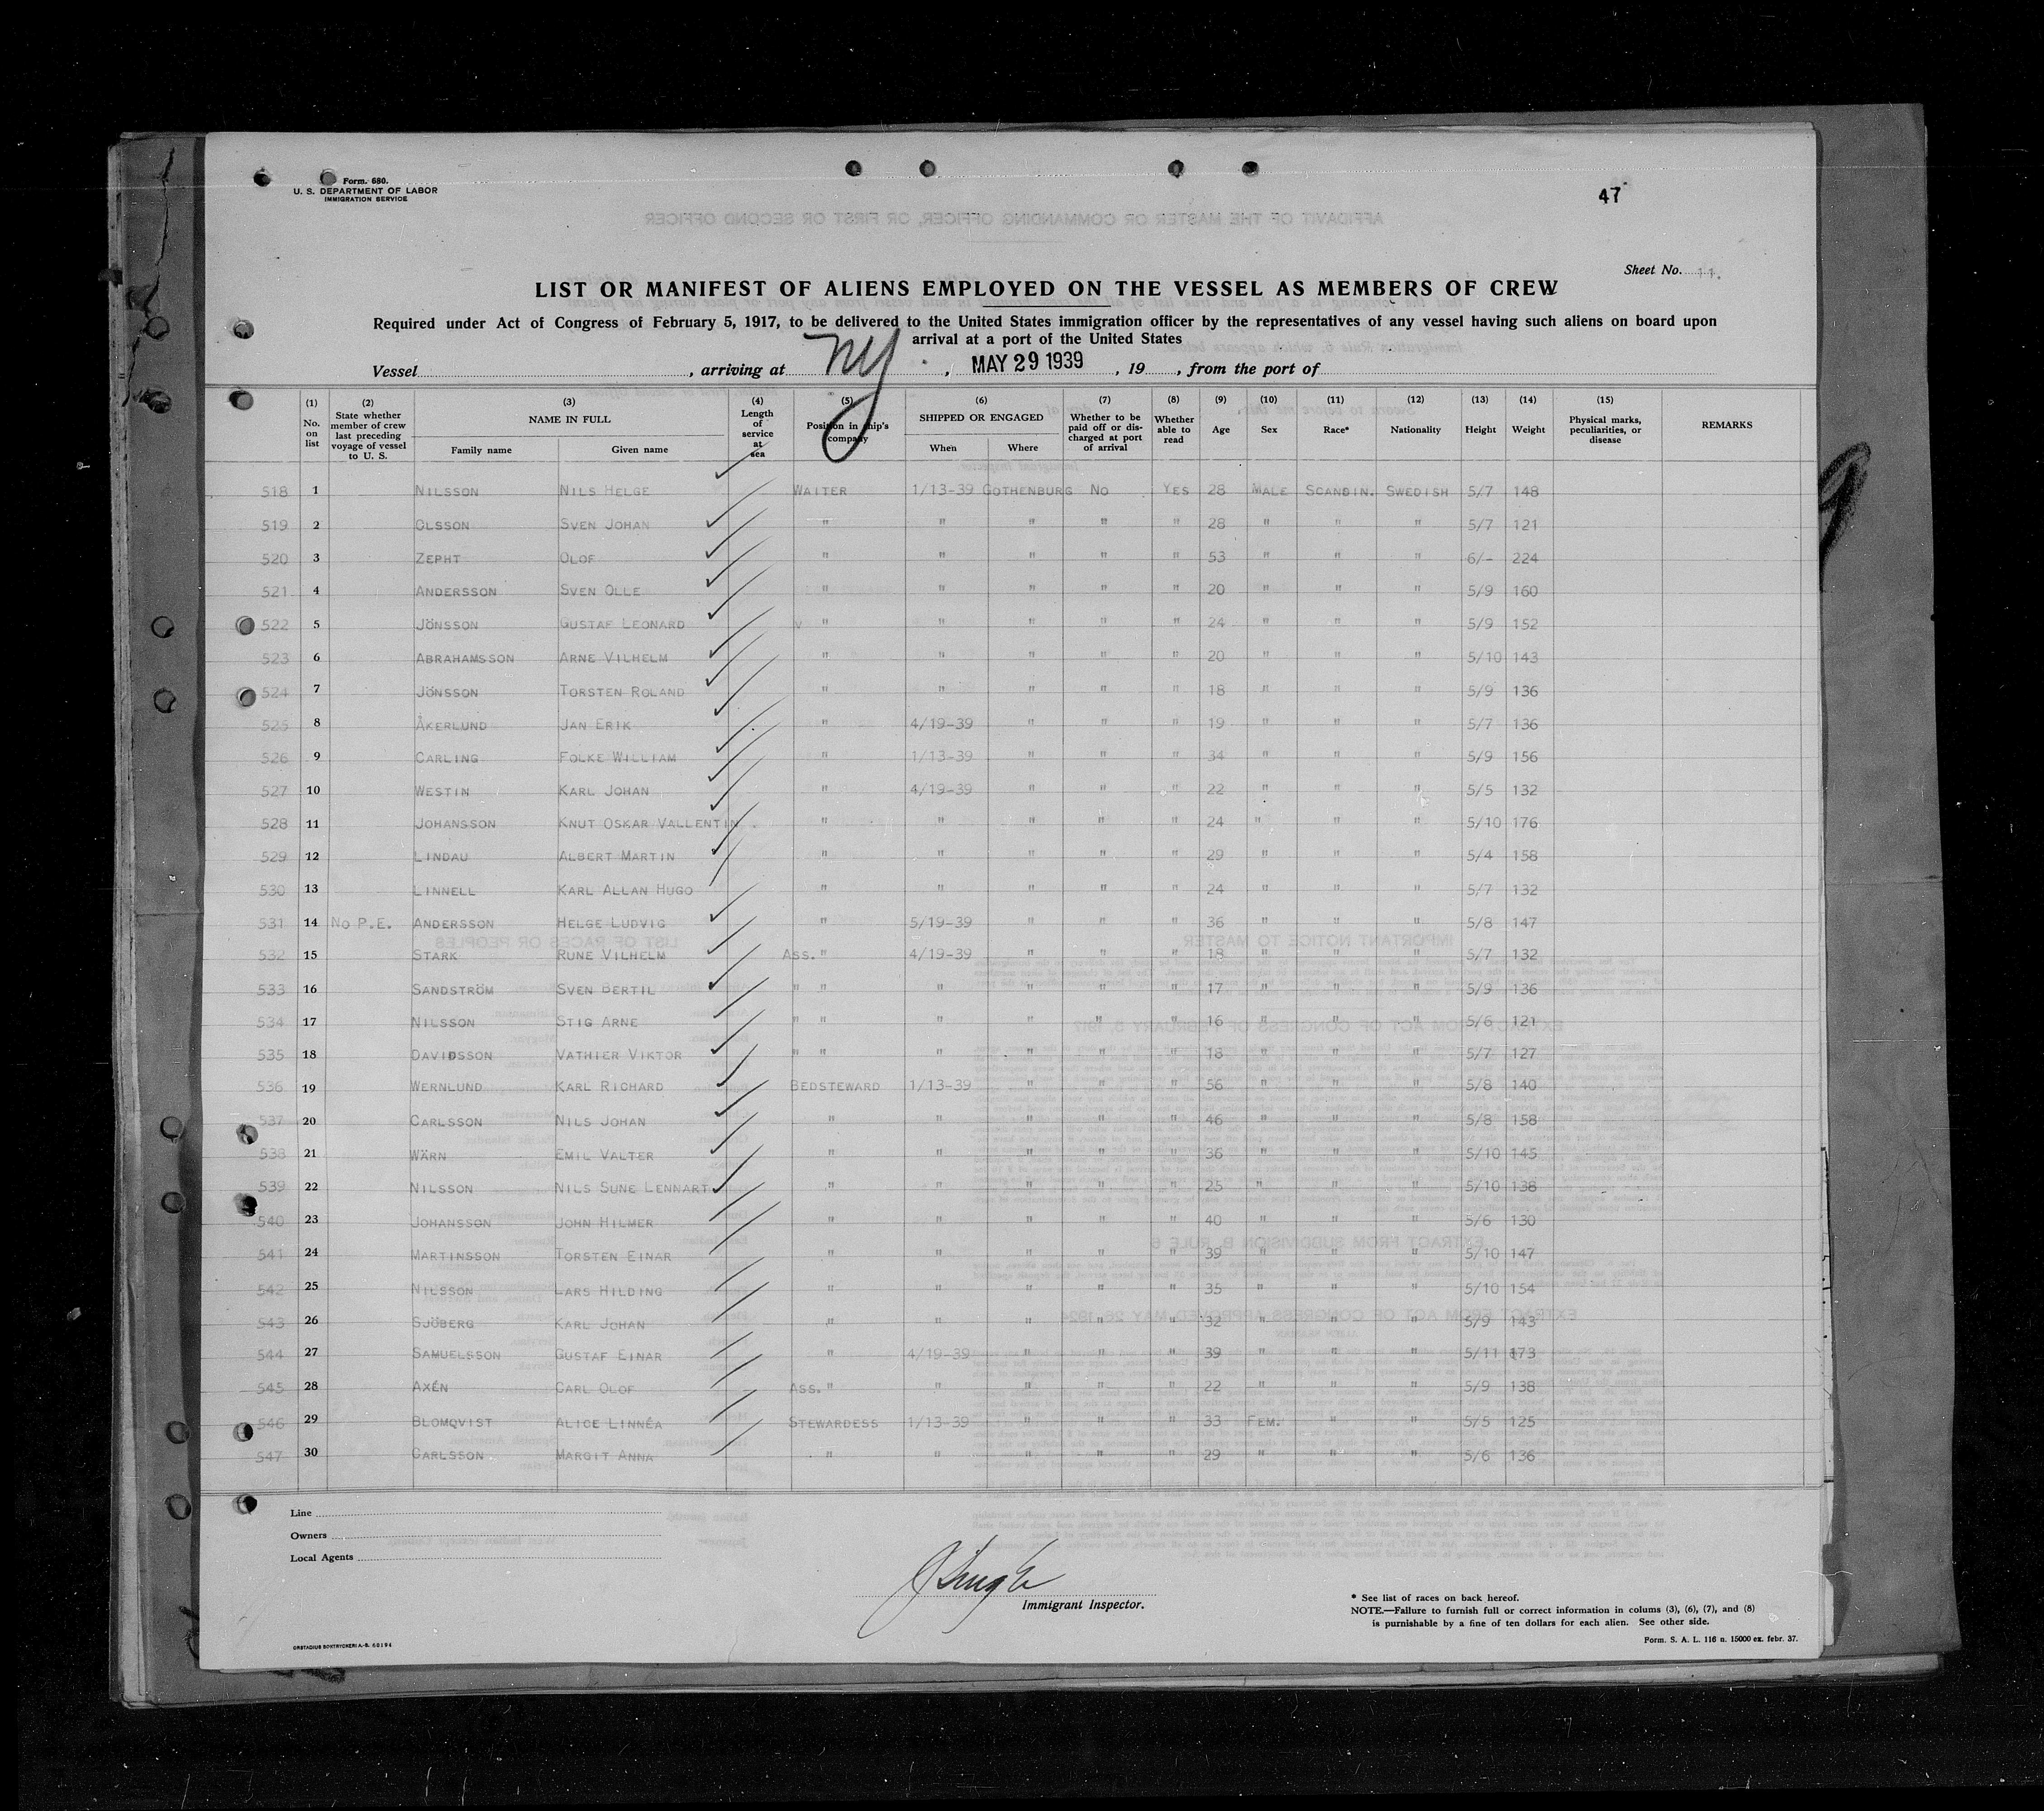 Form. 680.
U. S. DEPARTMENT OF LABOR
IMMIGRATION SERVICE
47
Sheet No. 11.
LIST OR MANIFEST OF ALIENS EMPLOYED ON THE VESSEL AS MEMBERS OF CREW
Required under Act of Congress of February 5, 1917, to be delivered to the United States immigration officer by the representatives of any vessel having such aliens on board upon
arrival at a port of the United States
Vessel , arriving at NY. , MAY 29 1939 , 19 , from the port of
(1) No. on list (2) State whether member of crew last preceding voyage of vessel to U. S. (3) NAME IN FULL Family name Given name (4) Length of service at sea (5) Position in ship's company (6) SHIPPED OR ENGAGED When Where (7) Whether to be paid off or discharged at port of arrival (8) Whether able to read (9) Age (10) Sex (11) Race* (12) Nationality (13) Height (14) Weight (15) Physical marks, peculiarities, or disease REMARKS
518 1 NILSSON NILS HELGE WAITER 1/13-39 GOTHENBURG NO YES 28 MALE SCANDIN. SWEDISH 5/7 148
519 2 OLSSON SVEN JOHAN " " " " " 28 " " " 5/7 121
520 3 ZEPHT OLOF " " " " " 53 " " " 6/- 224
521 4 ANDERSSON SVEN OLLE " " " " " 20 " " " 5/9 160
522 5 JÖNSSON GUSTAF LEONARD " " " " " 24 " " " 5/9 152
523 6 ABRAHAMSSON ARNE VILHELM " " " " " 20 " " " 5/10 143
524 7 JÖNSSON TORSTEN ROLAND " " " " " 18 " " " 5/9 136
525 8 ÅKERLUND JAN ERIK " 4/19-39 " " " 19 " " " 5/7 136
526 9 CARLING FOLKE WILLIAM " 1/13-39 " " " 34 " " " 5/9 156
527 10 WESTIN KARL JOHAN " 4/19-39 " " " 22 " " " 5/5 132
528 11 JOHANSSON KNUT OSKAR VALLENTIN " " " " " 24 " " " 5/10 176
529 12 LINDAU ALBERT MARTIN " " " " " 29 " " " 5/4 158
530 13 LINNELL KARL ALLAN HUGO " " " " " 24 " " " 5/7 132
531 14 NO P.E. ANDERSSON HELGE LUDVIG " 5/19-39 " " " 36 " " " 5/8 147
532 15 STARK RUNE VILHELM ASS. " 4/19-39 " " " 18 " " " 5/7 132
533 16 SANDSTRÖM SVEN BERTIL " " " " " " 17 " " " 5/9 136
534 17 NILSSON STIG ARNE " " " " " " 16 " " " 5/6 121
535 18 DAVIDSSON VATHIER VIKTOR " " " " " " 18 " " " 5/7 127
536 19 WERNLUND KARL RICHARD BEDSTEWARD 1/13-39 " " " 56 " " " 5/8 140
537 20 CARLSSON NILS JOHAN " " " " " 46 " " " 5/8 158
538 21 WÄRN EMIL VALTER " " " " " 36 " " " 5/10 145
539 22 NILSSON NILS SUNE LENNART " " " " " 25 " " " 5/10 138
540 23 JOHANSSON JOHN HILMER " " " " " 40 " " " 5/6 130
541 24 MARTINSSON TORSTEN EINAR " " " " " 39 " " " 5/10 147
542 25 NILSSON LARS HILDING " " " " " 35 " " " 5/10 154
543 26 SJÖBERG KARL JOHAN " " " " " 32 " " " 5/9 143
544 27 SAMUELSSON GUSTAF EINAR " 4/19-39 " " " 39 " " " 5/11 173
545 28 AXÉN CARL OLOF ASS. " " " " " 22 " " " 5/9 138
546 29 BLOMQVIST ALICE LINNÉA STEWARDESS 1/13-39 " " " 33 FEM. " " 5/5 125
547 30 CARLSSON MARGIT ANNA " " " " " 29 " " " 5/6 136
Line
Owners
Local Agents
Immigrant Inspector.
* See list of races on back hereof.
NOTE.—Failure to furnish full or correct information in colums (3), (6), (7), and (8)
is punishable by a fine of ten dollars for each alien. See other side.
ORSTADIUS BOKTRYCKERI A.-B. 60194
Form. S. A. L. 116 n. 15000 ex. febr. 37.